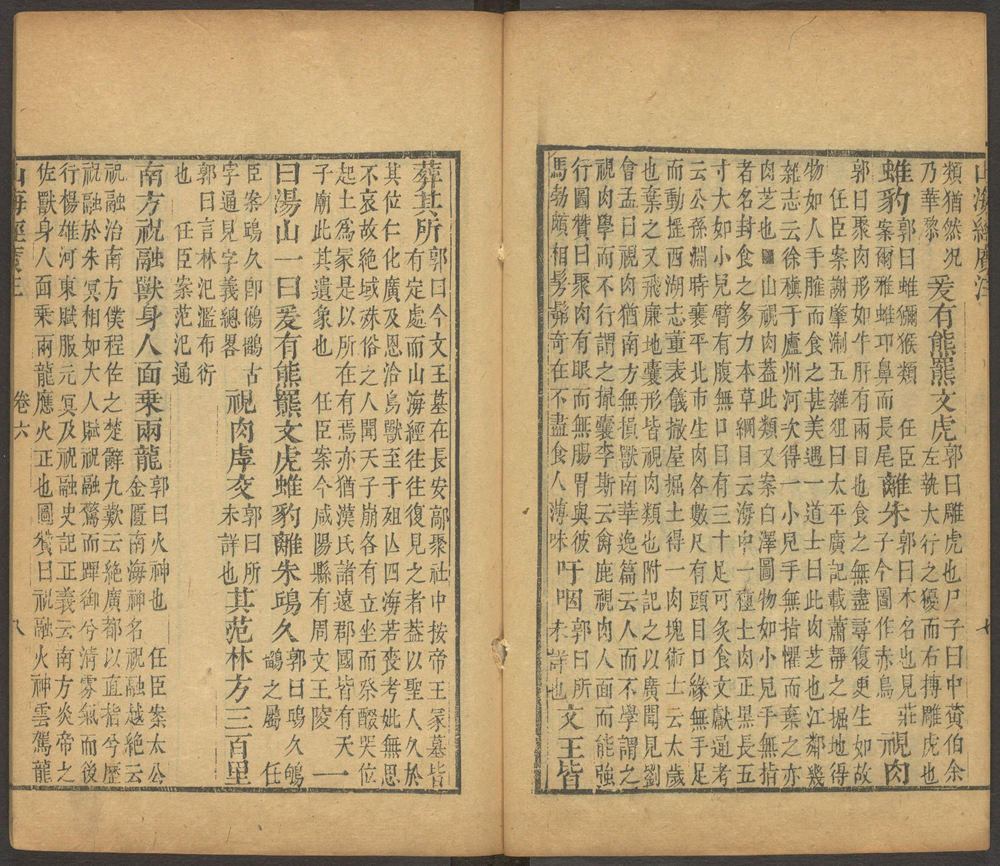 山海經廣注
類猶然況
乃華黎
爰有熊羆文虎郭曰雕虎也尸子曰中黃伯余
左執大行之獶而右搏雕虎也
蜼豹郭曰蜼獼猴類 任臣
案爾雅蜼卬鼻而長尾
離朱郭曰木名也見莊
子今圖作赤鳥
視肉
郭曰聚肉形如牛肝有兩目也食之無盡尋復更生如故
任臣案謝肇淛五雜俎曰太平廣記載蕭靜之掘地得
物如人手腯而食之甚美遇一道士曰此肉芝也江鄰幾
雜志云徐積于廬州河次得一小兒手無指懼而棄之亦
肉芝也 山視肉蓋此類又案白澤圖物如小兒手無指
者名封食之多力本草綱目云海中一種土肉正黑長五
寸大如小兒臂有腹無口目有三十足可炙食文獻通考
云公孫淵時襄平北市生肉各數尺有頭目口緣無手足
而動搖西湖志董表儀撤屋掘土得一肉塊術士云太歲
也棄之又飛廉地囊形皆視肉類也附記之以廣聞見劉
會孟曰視肉猶南方無損獸南華逸篇云人而不學謂之
視肉學而不行謂之撮囊李斯云禽鹿視肉人面而能強
行圖贊曰聚肉有眼而無腸胃與彼
馬勃頗相髣髴奇在不盡食人薄味
吁咽郭曰所
未詳也
文王皆
七
葬其所郭曰今文王墓在長安鄗聚社中按帝王冢墓皆
有定處而山海經往往復見之者蓋以聖人久於
其位仁化廣及恩洽鳥獸至于殂亾四海若喪考妣無思
不哀故絕域殊俗之人聞天子崩各有立坐而祭醊哭位
起土爲冢是以所在有焉亦猶漢氏諸遠郡國皆有天
子廟此其遺象也 任臣案今咸陽縣有周文王陵
一
曰湯山一曰爰有熊羆文虎蜼豹離朱鴟久郭曰鴟久鵂
鶹之屬 任
臣案鴟久卽鵂鶹古
字通見字義總畧
視肉虖交郭曰所
未詳也
其范林方三百里
郭曰言林汜濫布衍
也 任臣案范汜通
南方祝融獸身人面乘兩龍郭曰火神也 任臣案太公
金匱南海神名祝融越絕云
祝融治南方僕程佐之楚辭九歎云絕廣都以直指兮歷
祝融於朱冥相如大人賦祝融驚而蹕御兮清雰氣而後
行楊雄河東賦服元冥及祝融史記正義云南方炎帝之
佐獸身人面乘兩龍應火正也圖贊曰祝融火神雲駕龍
山海經廣注
卷六
八